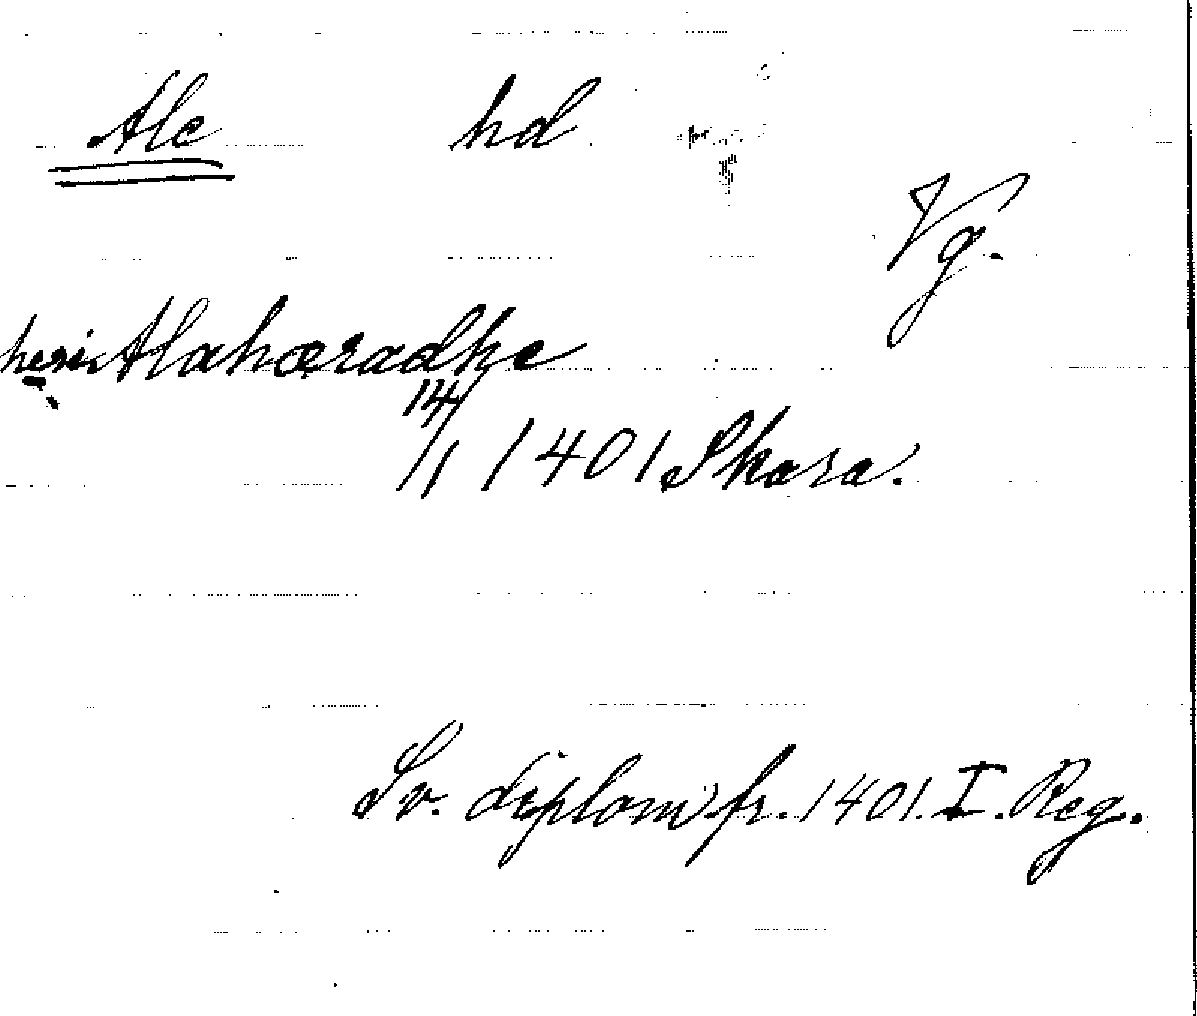 Ale hd
Vg.
Alahæradhe
14/1 1401 Skara.
Sv. diplom. fr. 1401. I. Reg.